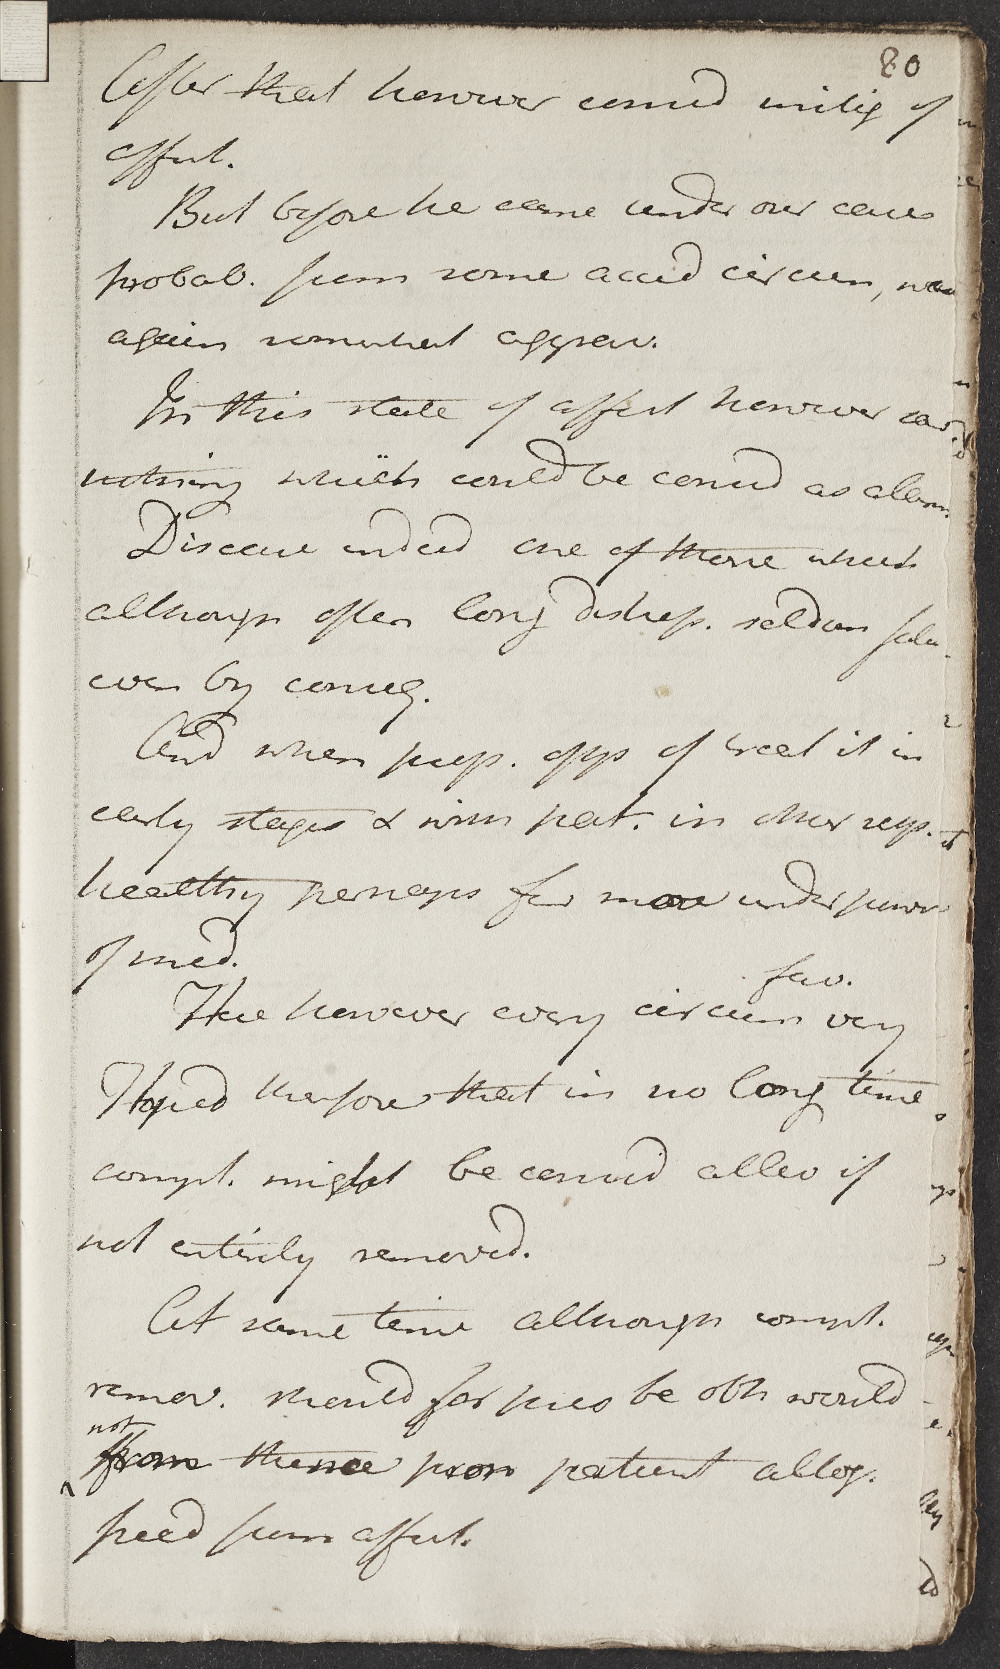 80
After that however consid mitig of
affect.
But before he came under our care
probab. from some accid circum, was
again somewhat aggrav.
In this state of affect however
nothing which could be consid as alarm.
Disease indeed one of those which
although often long distress. seldom fatal
even by conseq.
And when prop. opp of treat it in
early stages & with pat. in other resp.
healthy perhaps few more under power
of med.
fav.
Here however every circum very
Hoped therefore that in no long time
compl. might be consid allev if
not entirely removed.
At same time although compl.
remov. should for pres be obt would
not
from thence pron patient altog.
freed from affect.